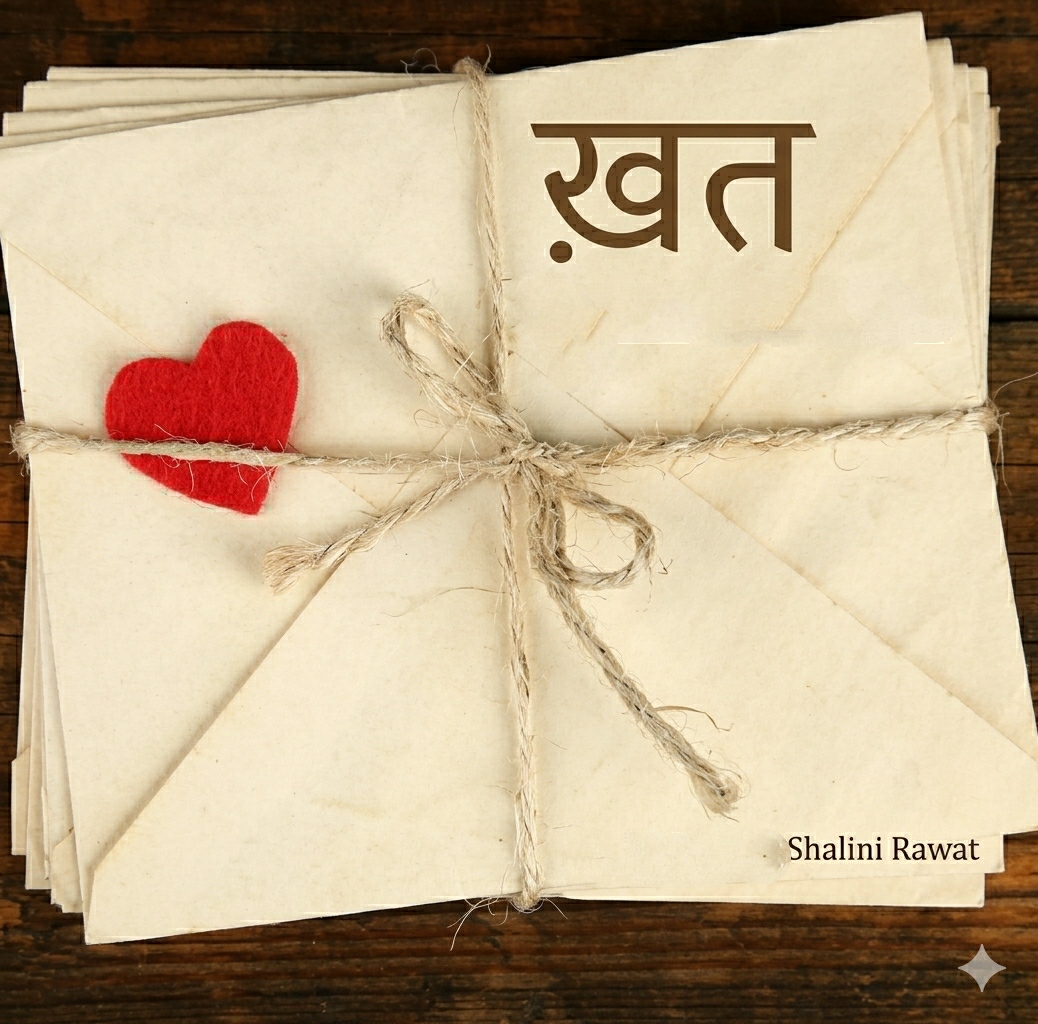 ख़त
Shalini Rawat